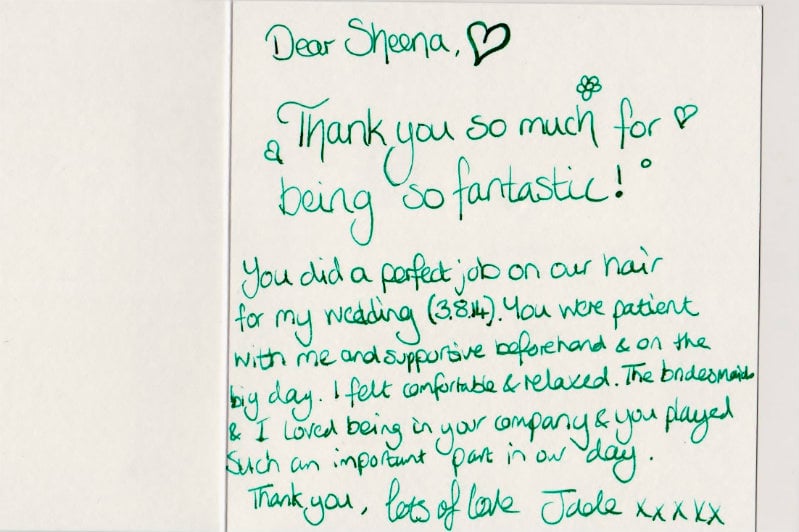 Dear Sheena,
Thank you so much for
being so fantastic!
You did a perfect job on our hair
for my wedding (3.8.14). You were patient
with me and supportive beforehand & on the
big day. I felt comfortable & relaxed. The bridesmaids
& I loved being in your company & you played
such an important part in our day.
Thank you, lots of love Jade xxxxx